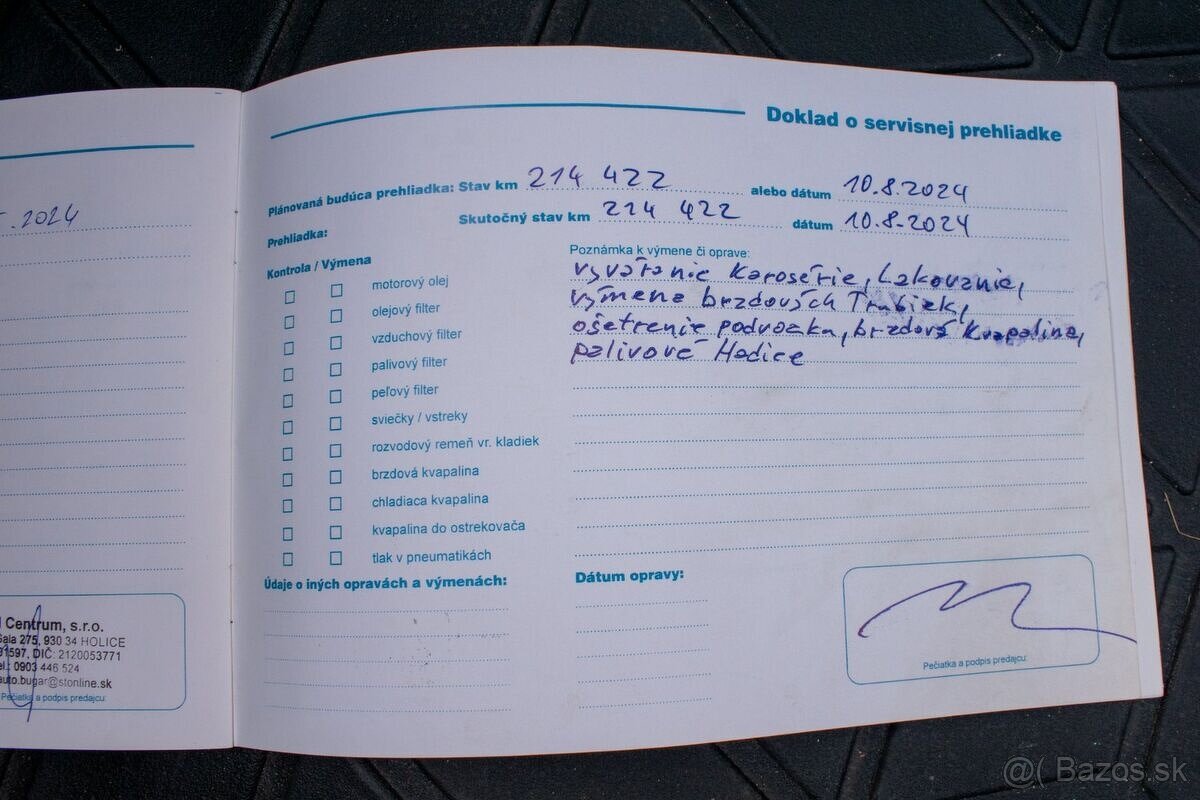 . 2024
Centrum, s.r.o.
Sala 275, 930 34 HOLICE
91597, DIČ: 2120053771
el.: 0903 446 524
auto.bugar@stonline.sk
Pečiatka a podpis predajcu:
Doklad o servisnej prehliadke
Plánovaná budúca prehliadka: Stav km 214 422 alebo dátum 10.8.2024
Skutočný stav km 214 422 dátum 10.8.2024
Prehliadka:
Kontrola / Výmena
motorový olej
olejový filter
vzduchový filter
palivový filter
peľový filter
sviečky / vstreky
rozvodový remeň vr. kladiek
brzdová kvapalina
chladiaca kvapalina
kvapalina do ostrekovača
tlak v pneumatikách
Poznámka k výmene či oprave:
vyváranie Karosérie, Lakovanie,
výmena brzdových Trubiek,
ošetrenie podvozka, brzdová Kvapalina,
palivové Hadice
Údaje o iných opravách a výmenách:
Dátum opravy:
Pečiatka a podpis predajcu:
@( Bazos.sk